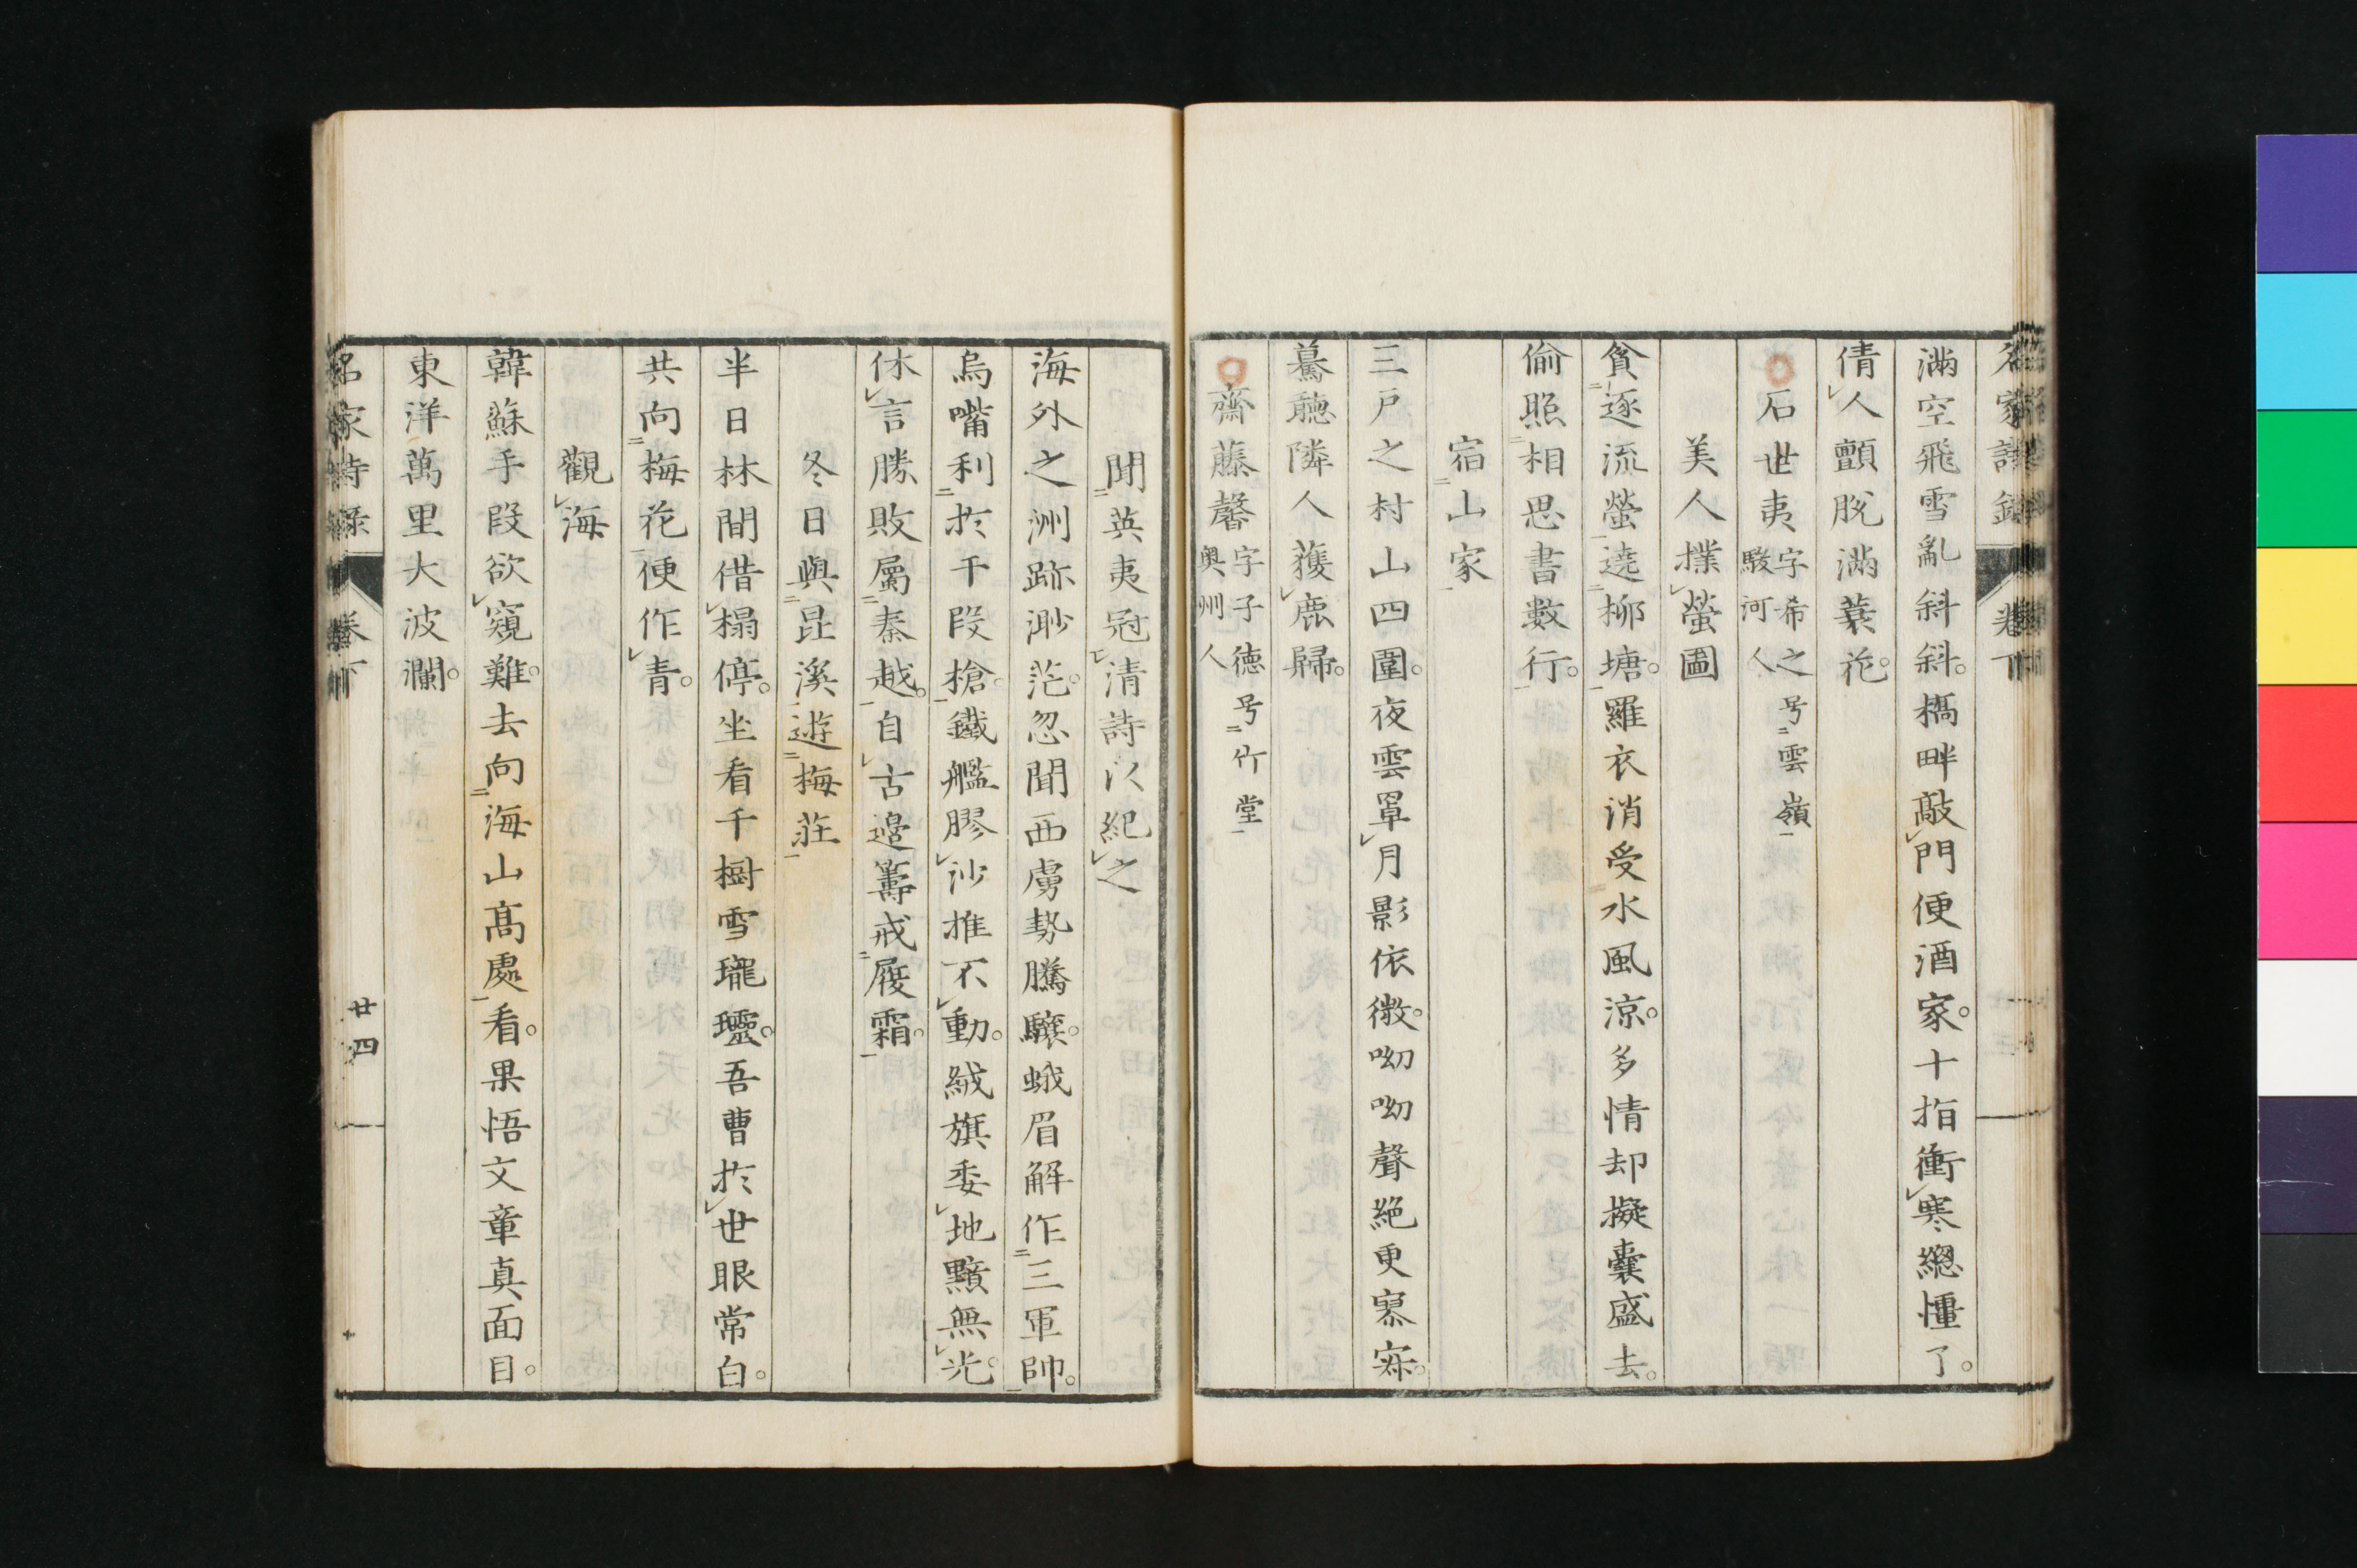 名家詩錄 卷下
滿空飛雪亂斜斜。橋畔敲門便酒家。十指衝寒總慵了。
倩人顫脫滿蓑花。
石世夷 字希之号雲嶺 駿河人
美人撲螢圖
貪逐流螢遶柳塘。羅衣消受水風涼。多情却擬囊盛去。
偷照相思書數行。
宿山家
三戶之村山四圍。夜雲罩月影依微。呦呦聲絕更寥寂。
驀聽隣人獲鹿歸。
齋藤馨 字子德号竹堂 奥州人
聞英夷冦清詩以紀之
海外之洲跡渺茫。忽聞西虜勢騰驤。蛾眉解作三軍帥。
烏嘴利於千段槍。鐵艦膠沙推不動。絨旗委地黯無光。
休言勝敗屬秦越。自古邊籌戒履霜。
冬日與昆溪遊梅莊
半日林間借榻停。坐看千樹雪瓏璁。吾曹於世眼常白。
共向梅花便作青。
觀海
韓蘇手段欲窺難。去向海山高處看。果悟文章真面目。
東洋萬里大波瀾。
名家詩錄 卷下 廿四